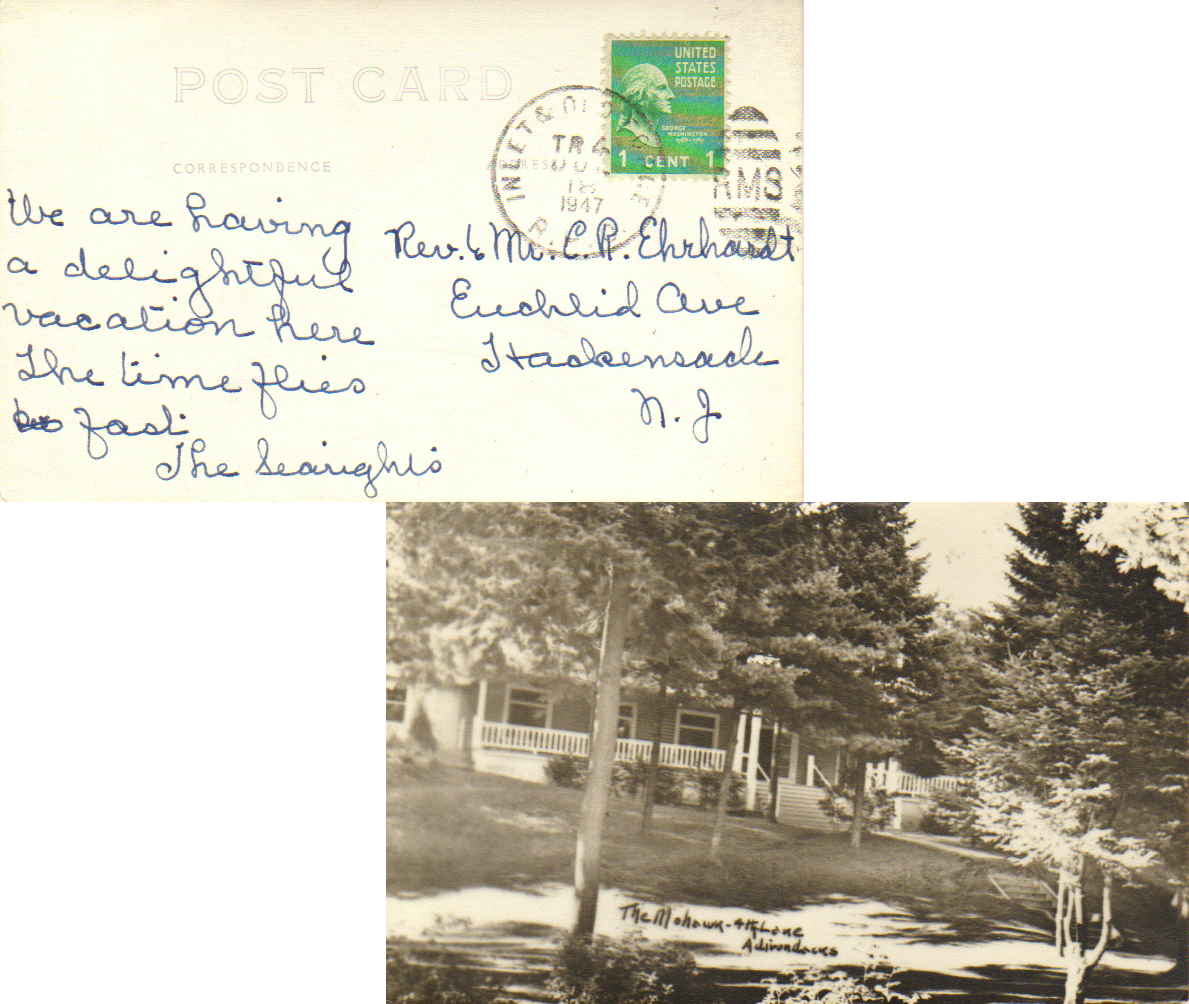 POST CARD
CORRESPONDENCE
ADDRESS
UNITED
STATES
POSTAGE
GEORGE
WASHINGTON
1 CENT 1
INLET &
TR 4
18
1947
R.P.O.
RMS
We are having
a delightful
vacation here
The time flies
so fast
The Searights
Rev. & Mr. C. R. Ehrhardt
Euchlid Ave
Hackensack
N. J
The Mohawk - 4th Lake
Adirondacks